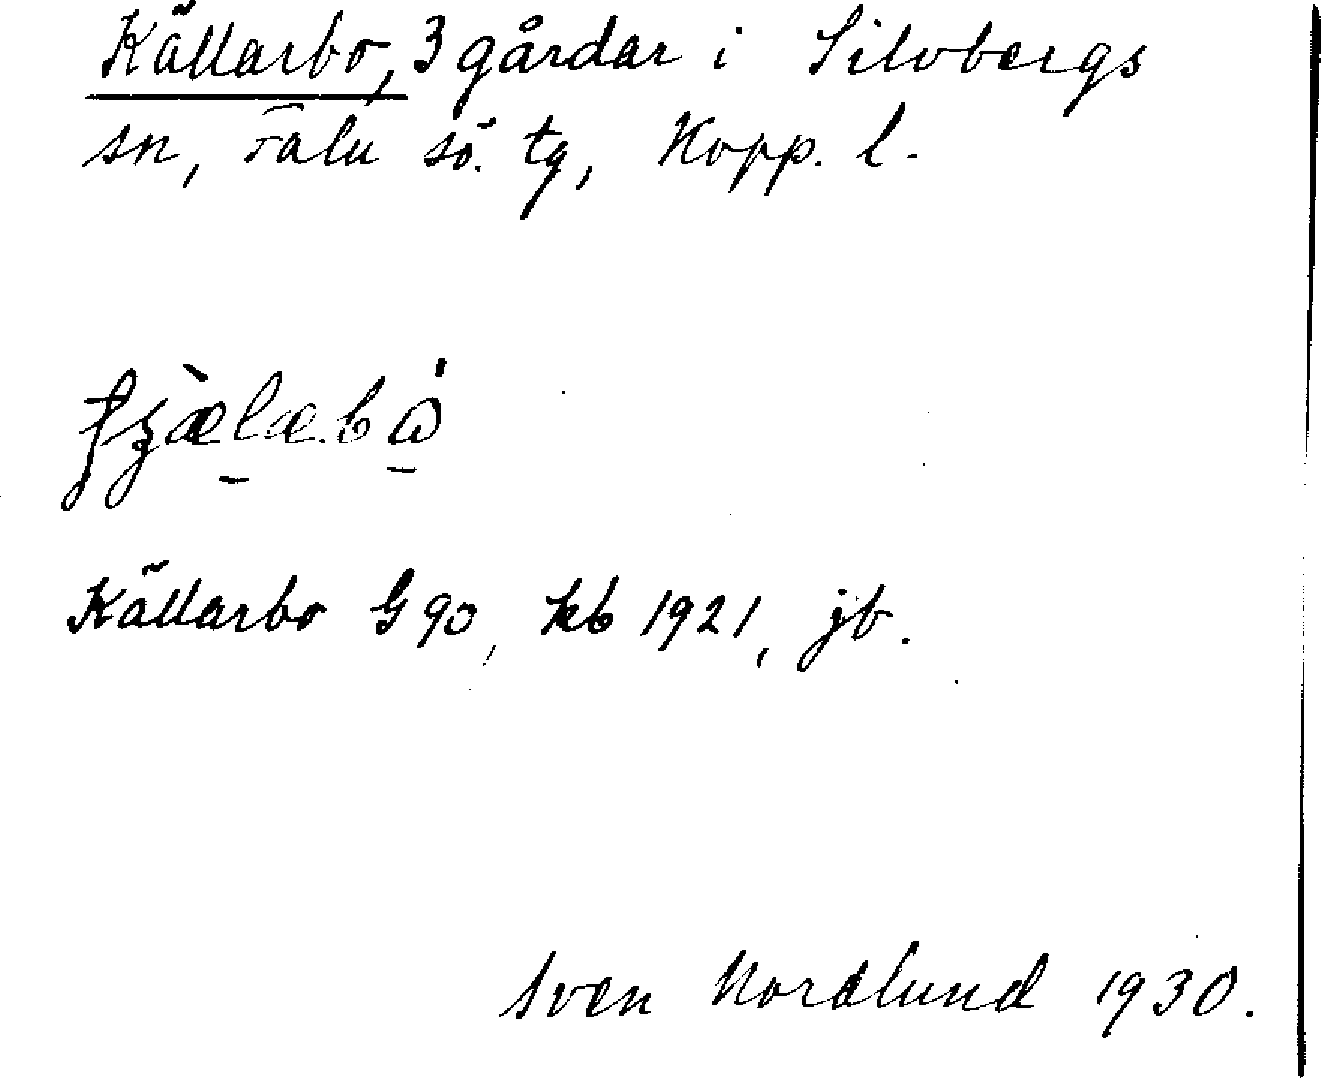 Källarbo, 3 gårdar i Silvbergs
sn, Falu sö. tg, Kopp. l.
Källarbo G 90, kb 1921, jb.
Sven Nordlund 1930.